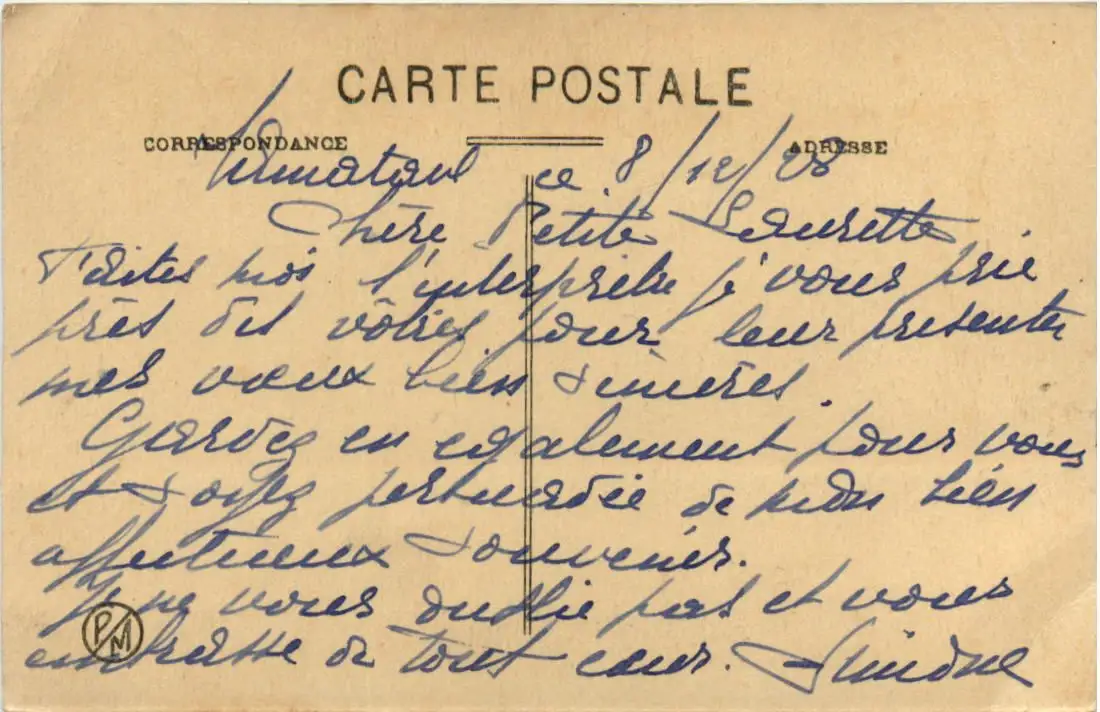 CARTE POSTALE
CORRESPONDANCE
ADRESSE
ce 8/12/28
Chère Petite Laurette
Faites moi l'interprète je vous prie
près des vôtres pour leur presenter
mes vœux bien sincères.
Gardez en egalement pour vous
et soyez persuadée de mon bien
affectueux souvenir.
Je ne vous oublie pas et vous
embrasse de tout cœur. Simone
PM